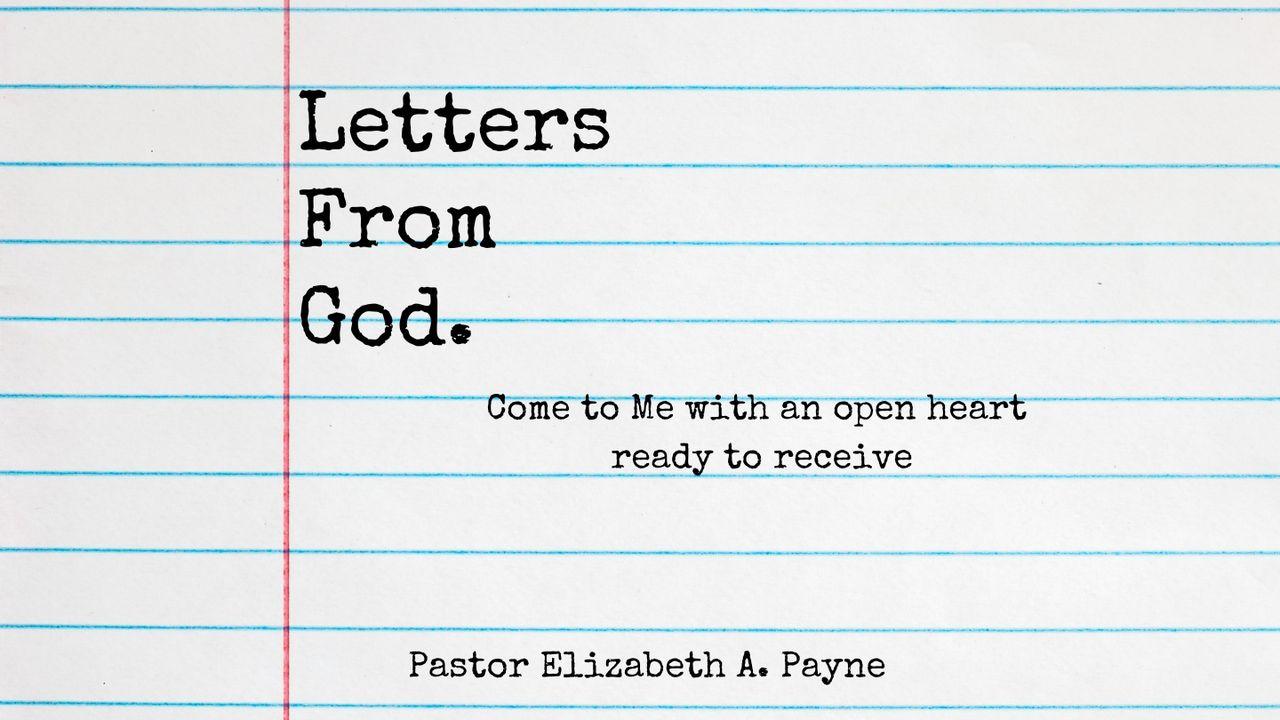 Letters
From
God.
Come to Me with an open heart
ready to receive
Pastor Elizabeth A. Payne